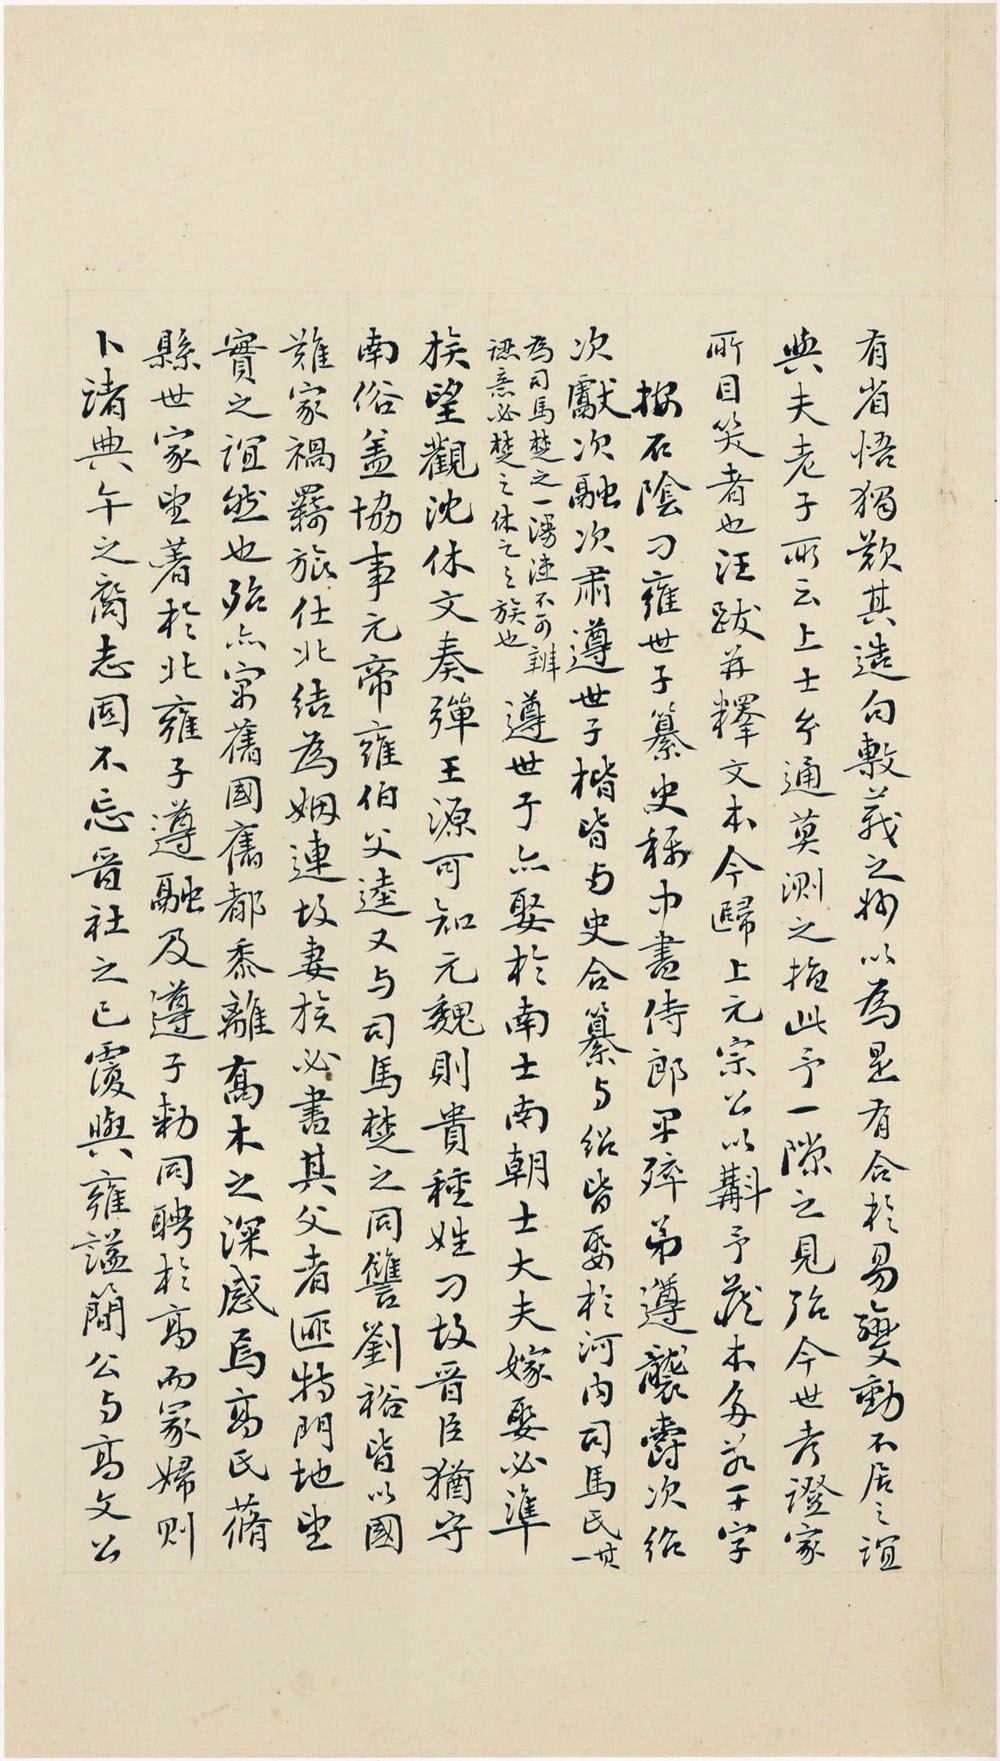 有省悟獨歎其造句敷義之妙以為是有合於易變動不居之誼
與夫老子所云上士兮通莫測之指此予一隙之見殆今世考證家
所目笑者也汪跋并釋文本今歸上元宗公以斠予藏本多若干字
按石陰刁雍世子纂史稱中書侍郎早殤弟遵襲爵次紹
次獻次融次肅遵世子楷皆与史合纂与紹皆娶於河內司馬氏其一
為司馬楚之一漫漶不可辨
諦意必楚之休之之族也
遵世子亦娶於南士南朝士大夫嫁娶必準
族望觀沈休文奏彈王源可知元魏則貴種姓刁故晉臣猶守
南俗盖協事元帝雍伯父逵又与司馬楚之同讐劉裕皆以國
難家禍羈旅仕北結為姻連故妻族必書其父者匪特門地望
實之誼然也殆亦寓舊國舊都黍離喬木之深感焉高氏蓨
縣世家望著於北雍子遵融及遵子勑同聘於高而冢婦則
卜諸典午之裔志固不忘晉社之已覆與雍謚簡公与高文公